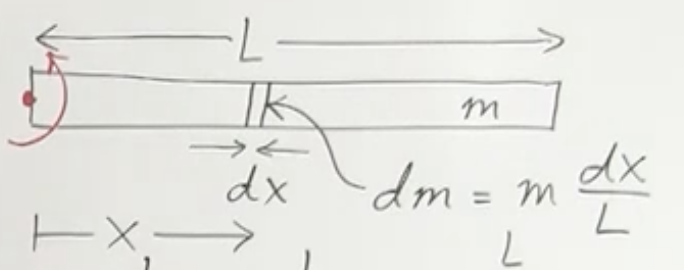 L
m
dx
dm = m dx/L
x
L